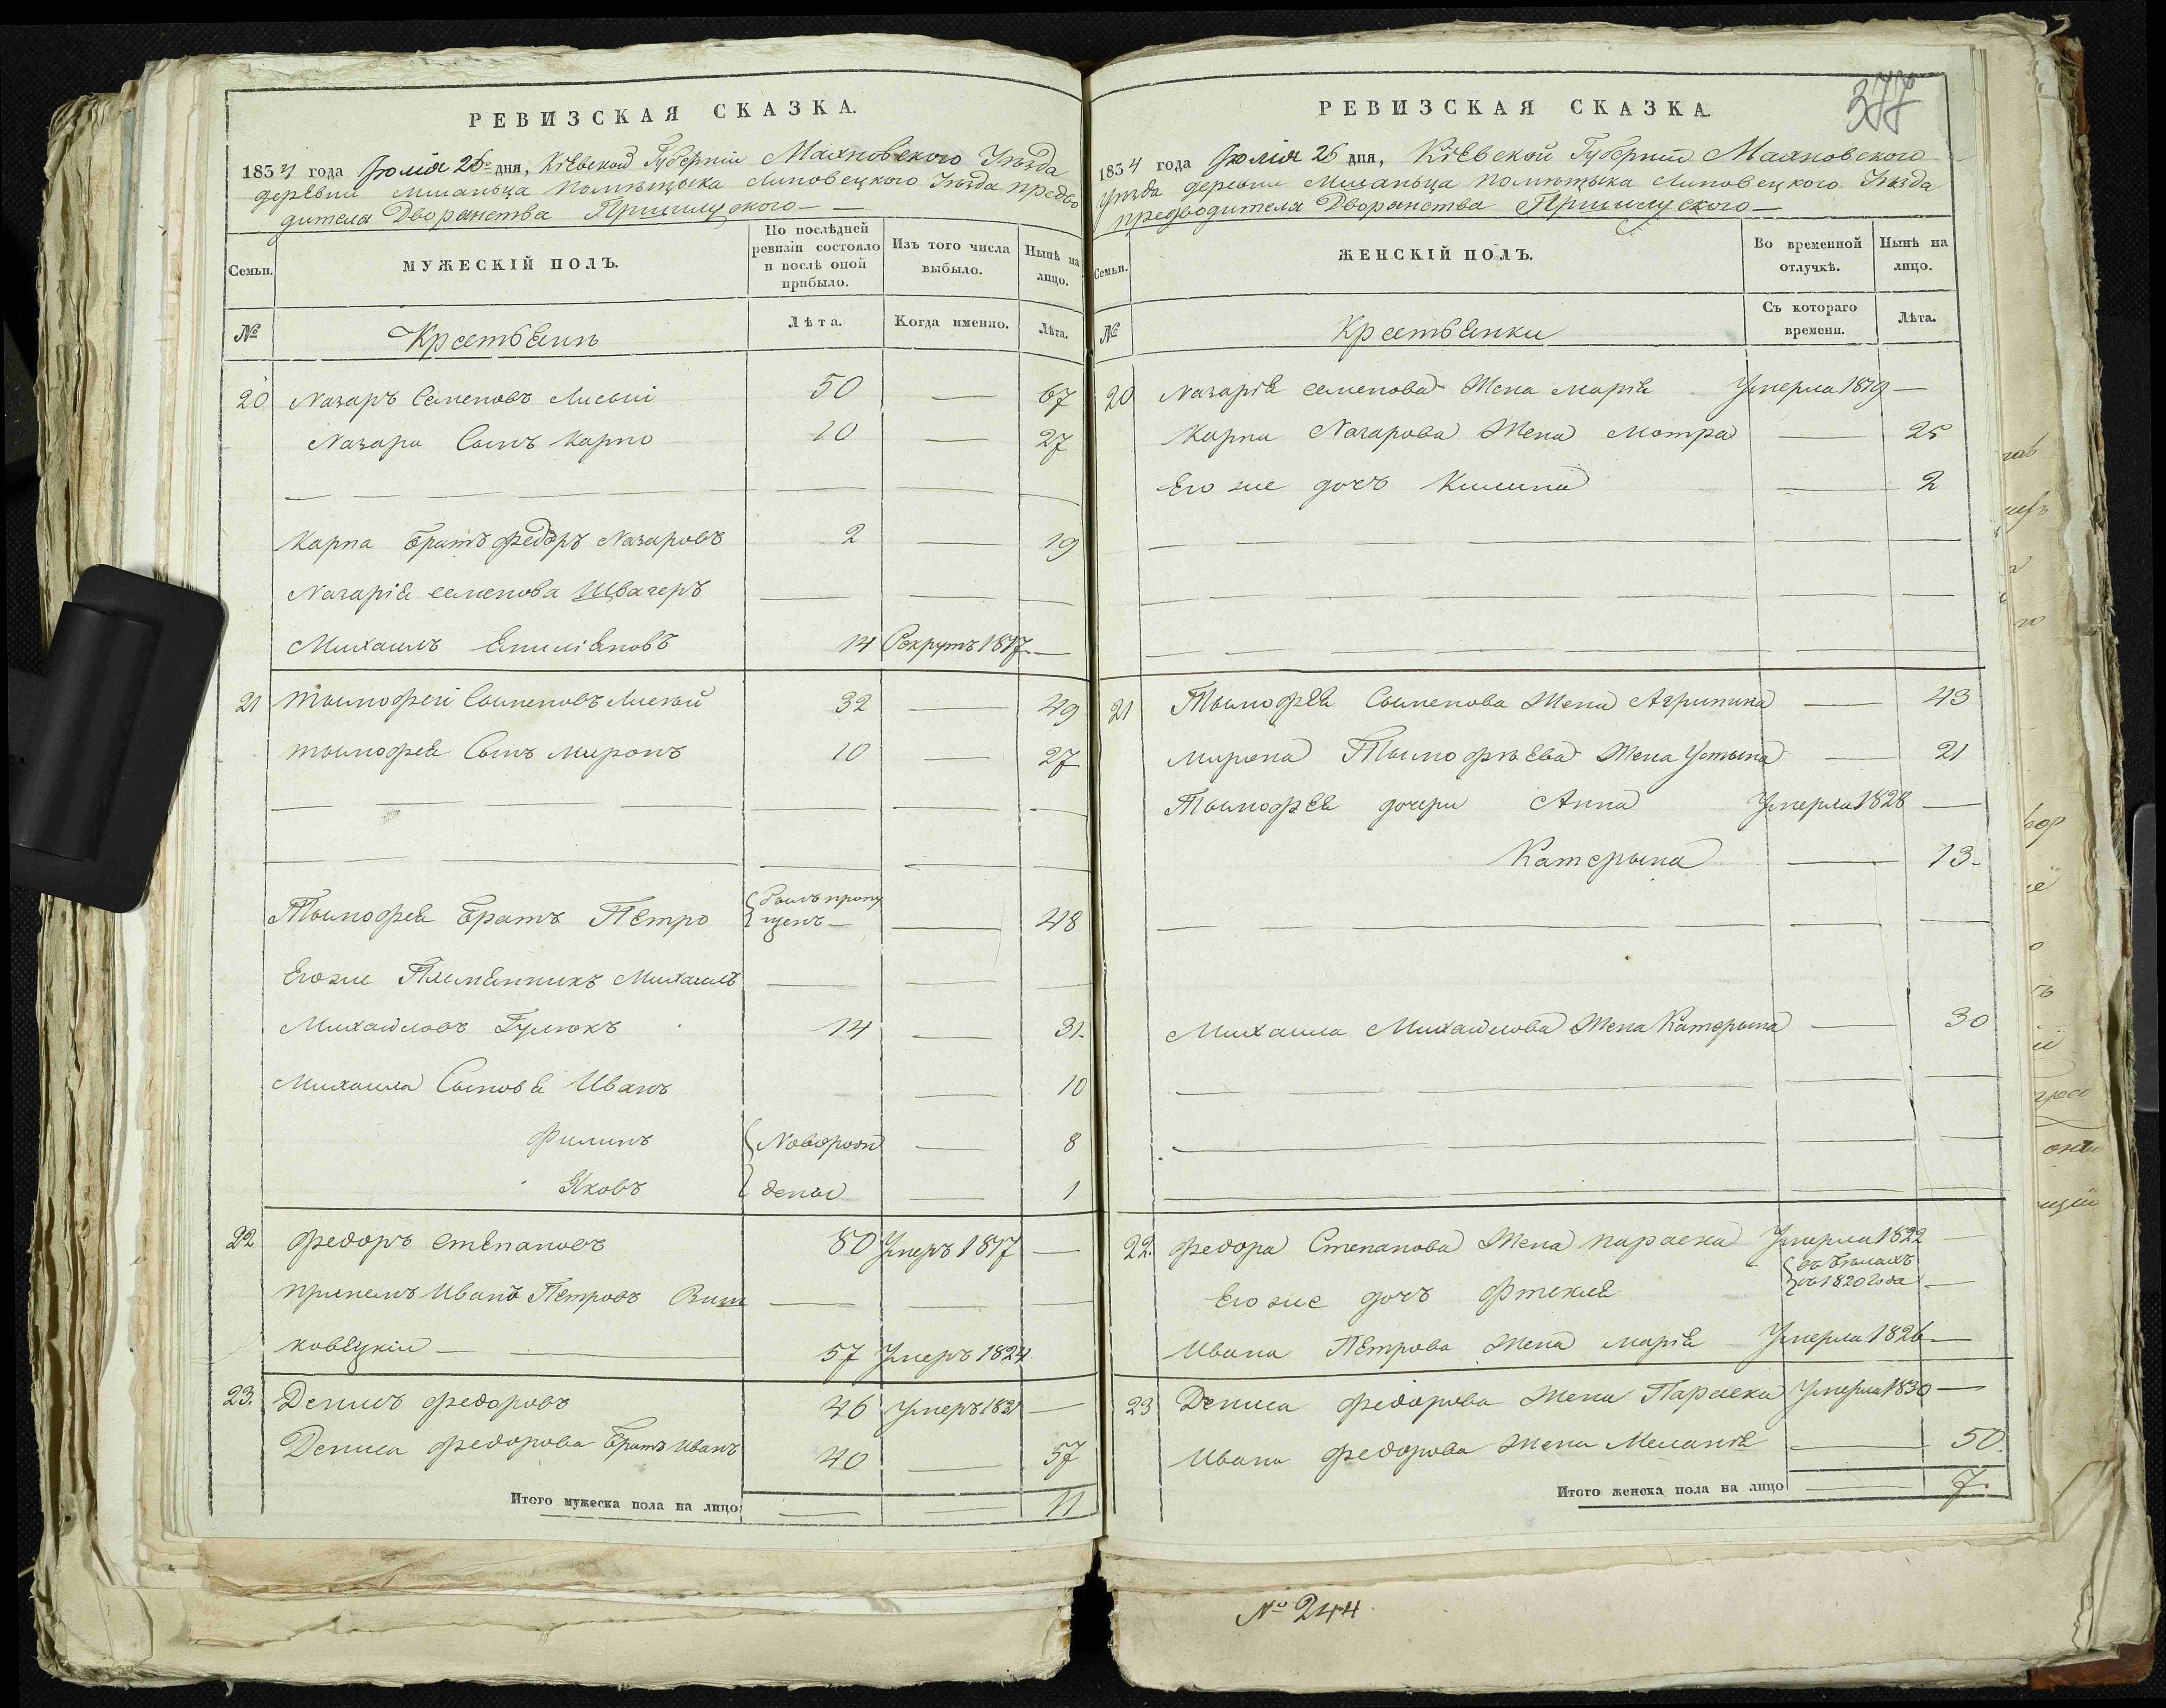 РЕВИЗСКАЯ СКАЗКА.
1834 года Июля 26 дня, Кіевской Губерніи Махновского Уѣзда
деревни помѣщыка Липовецкого Уѣзда предво
дителя Дворянства
Семьи.
МУЖЕСКІЙ ПОЛЪ.
По послѣдней ревизіи состояло и послѣ оной прибыло.
Изъ того числа выбыло.
Нынѣ на лицо.
№
Крестьяне
Лѣта.
Когда именно.
Лѣта.
20 Назаръ Семеновъ Лисыі 50 — 67
Назара Сынъ Карпо 10 — 27
Карпа Братъ Федоръ Назаровъ 2 19
Назарія Семенова Швагеръ
Михаилъ 14 Рекрутъ 1817 —
21 Тымофеі Сыменовъ Лисый 32 — 49
Тымофея Сынъ Миронъ 10 — 27
Тымофея Братъ Петро Былъ пропу
щенъ — 48
Его же Племянникъ Михаилъ
Михайловъ Гулюкъ 14 — 31
Михаила Сыновья Иванъ — 10
Филипъ Новорож — 8
Яковъ дены — 1
22 Федоръ Степановъ 80 Умеръ 1817 —
Иванъ Петровъ
57 Умеръ 1824
23. Денисъ Федоровъ 46 Умеръ 1831 —
Дениса Федорова Братъ Иванъ 40 — 57
Итого мужеска пола на лицо — — 11
377
РЕВИЗСКАЯ СКАЗКА
1834 года Июля 26 дня, Кіевской Губерніи Махновского
Уѣзда деревни помѣщыка Липовецкого Уѣзда
предводителя Дворянства
Семьи.
ЖЕНСКІЙ ПОЛЪ.
Во временной отлучкѣ.
Нынѣ на лицо.
№
Крестьянки
Съ котораго времени.
Лѣта.
20 Назарія Семенова Жена Марія Умерла 1819 —
Карпа Назарова Жена Мотра — 25
Его же дочъ Килина — 2
21 Тымофея Сыменова Жена Агрипина — 43
Мирона Тымофѣева Жена Устына — 21
Тымофея дочери Анна Умерла 1828 —
Катерына — 13
Михаила Михайлова Жена Катерына — 30
22. Федора Степанова Жена Параска Умерла 1822 —
въ Бѣгахъ
съ 1820 года
Его же дочъ —
Ивана Петрова Жена Марія Умерла 1826 —
23 Дениса Федорова Жена Параска Умерла 1830 —
Ивана Федорова Жена Меланія — 50.
Итого женска пола на лицо — 7.
№ 244